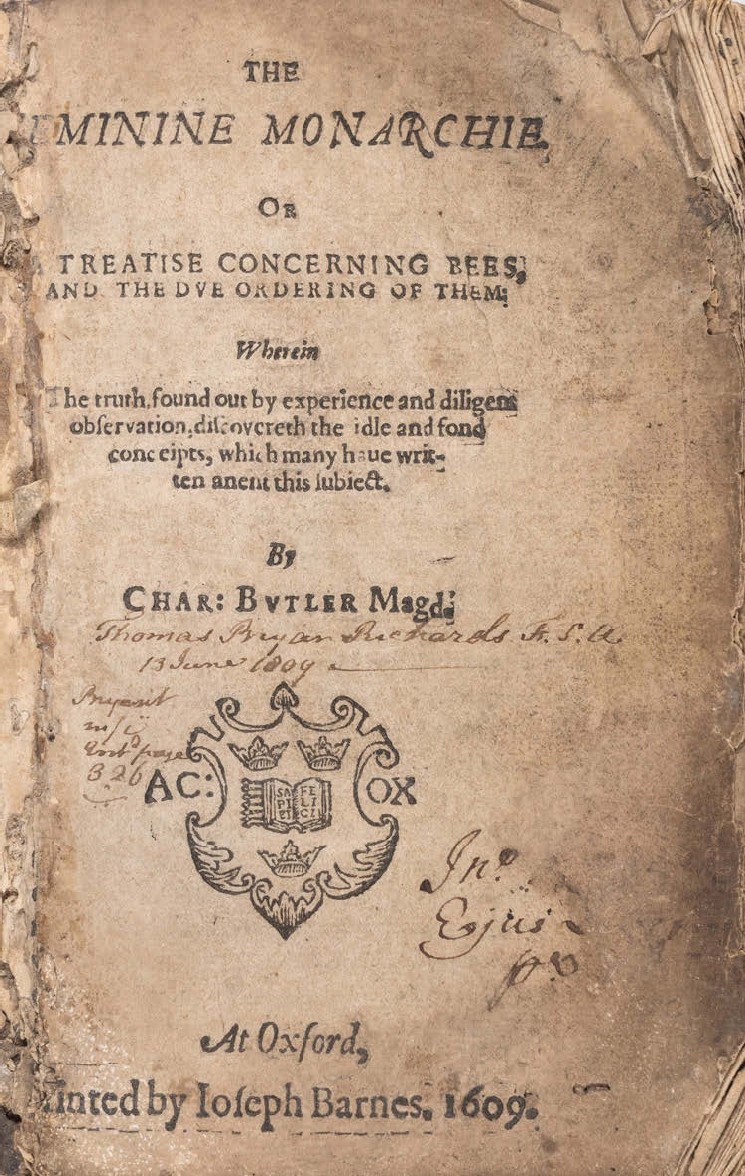 THE
EMININE MONARCHIE.
OR
A TREATISE CONCERNING BEES,
AND THE DVE ORDERING OF THEM:
Wherein
The truth, found out by experience and diligent
obſervation, diſcovereth the idle and fond
conceipts, which many haue writ-
ten anent this ſubiect.
By
CHAR: BVTLER Magd:
Thomas Bryan Richards F. S. A.
13 June 1809
page
326
AC: OX
SA PI ET FE LI CI
Jno.
Ejus
At Oxford,
inted by Ioſeph Barnes. 1609.